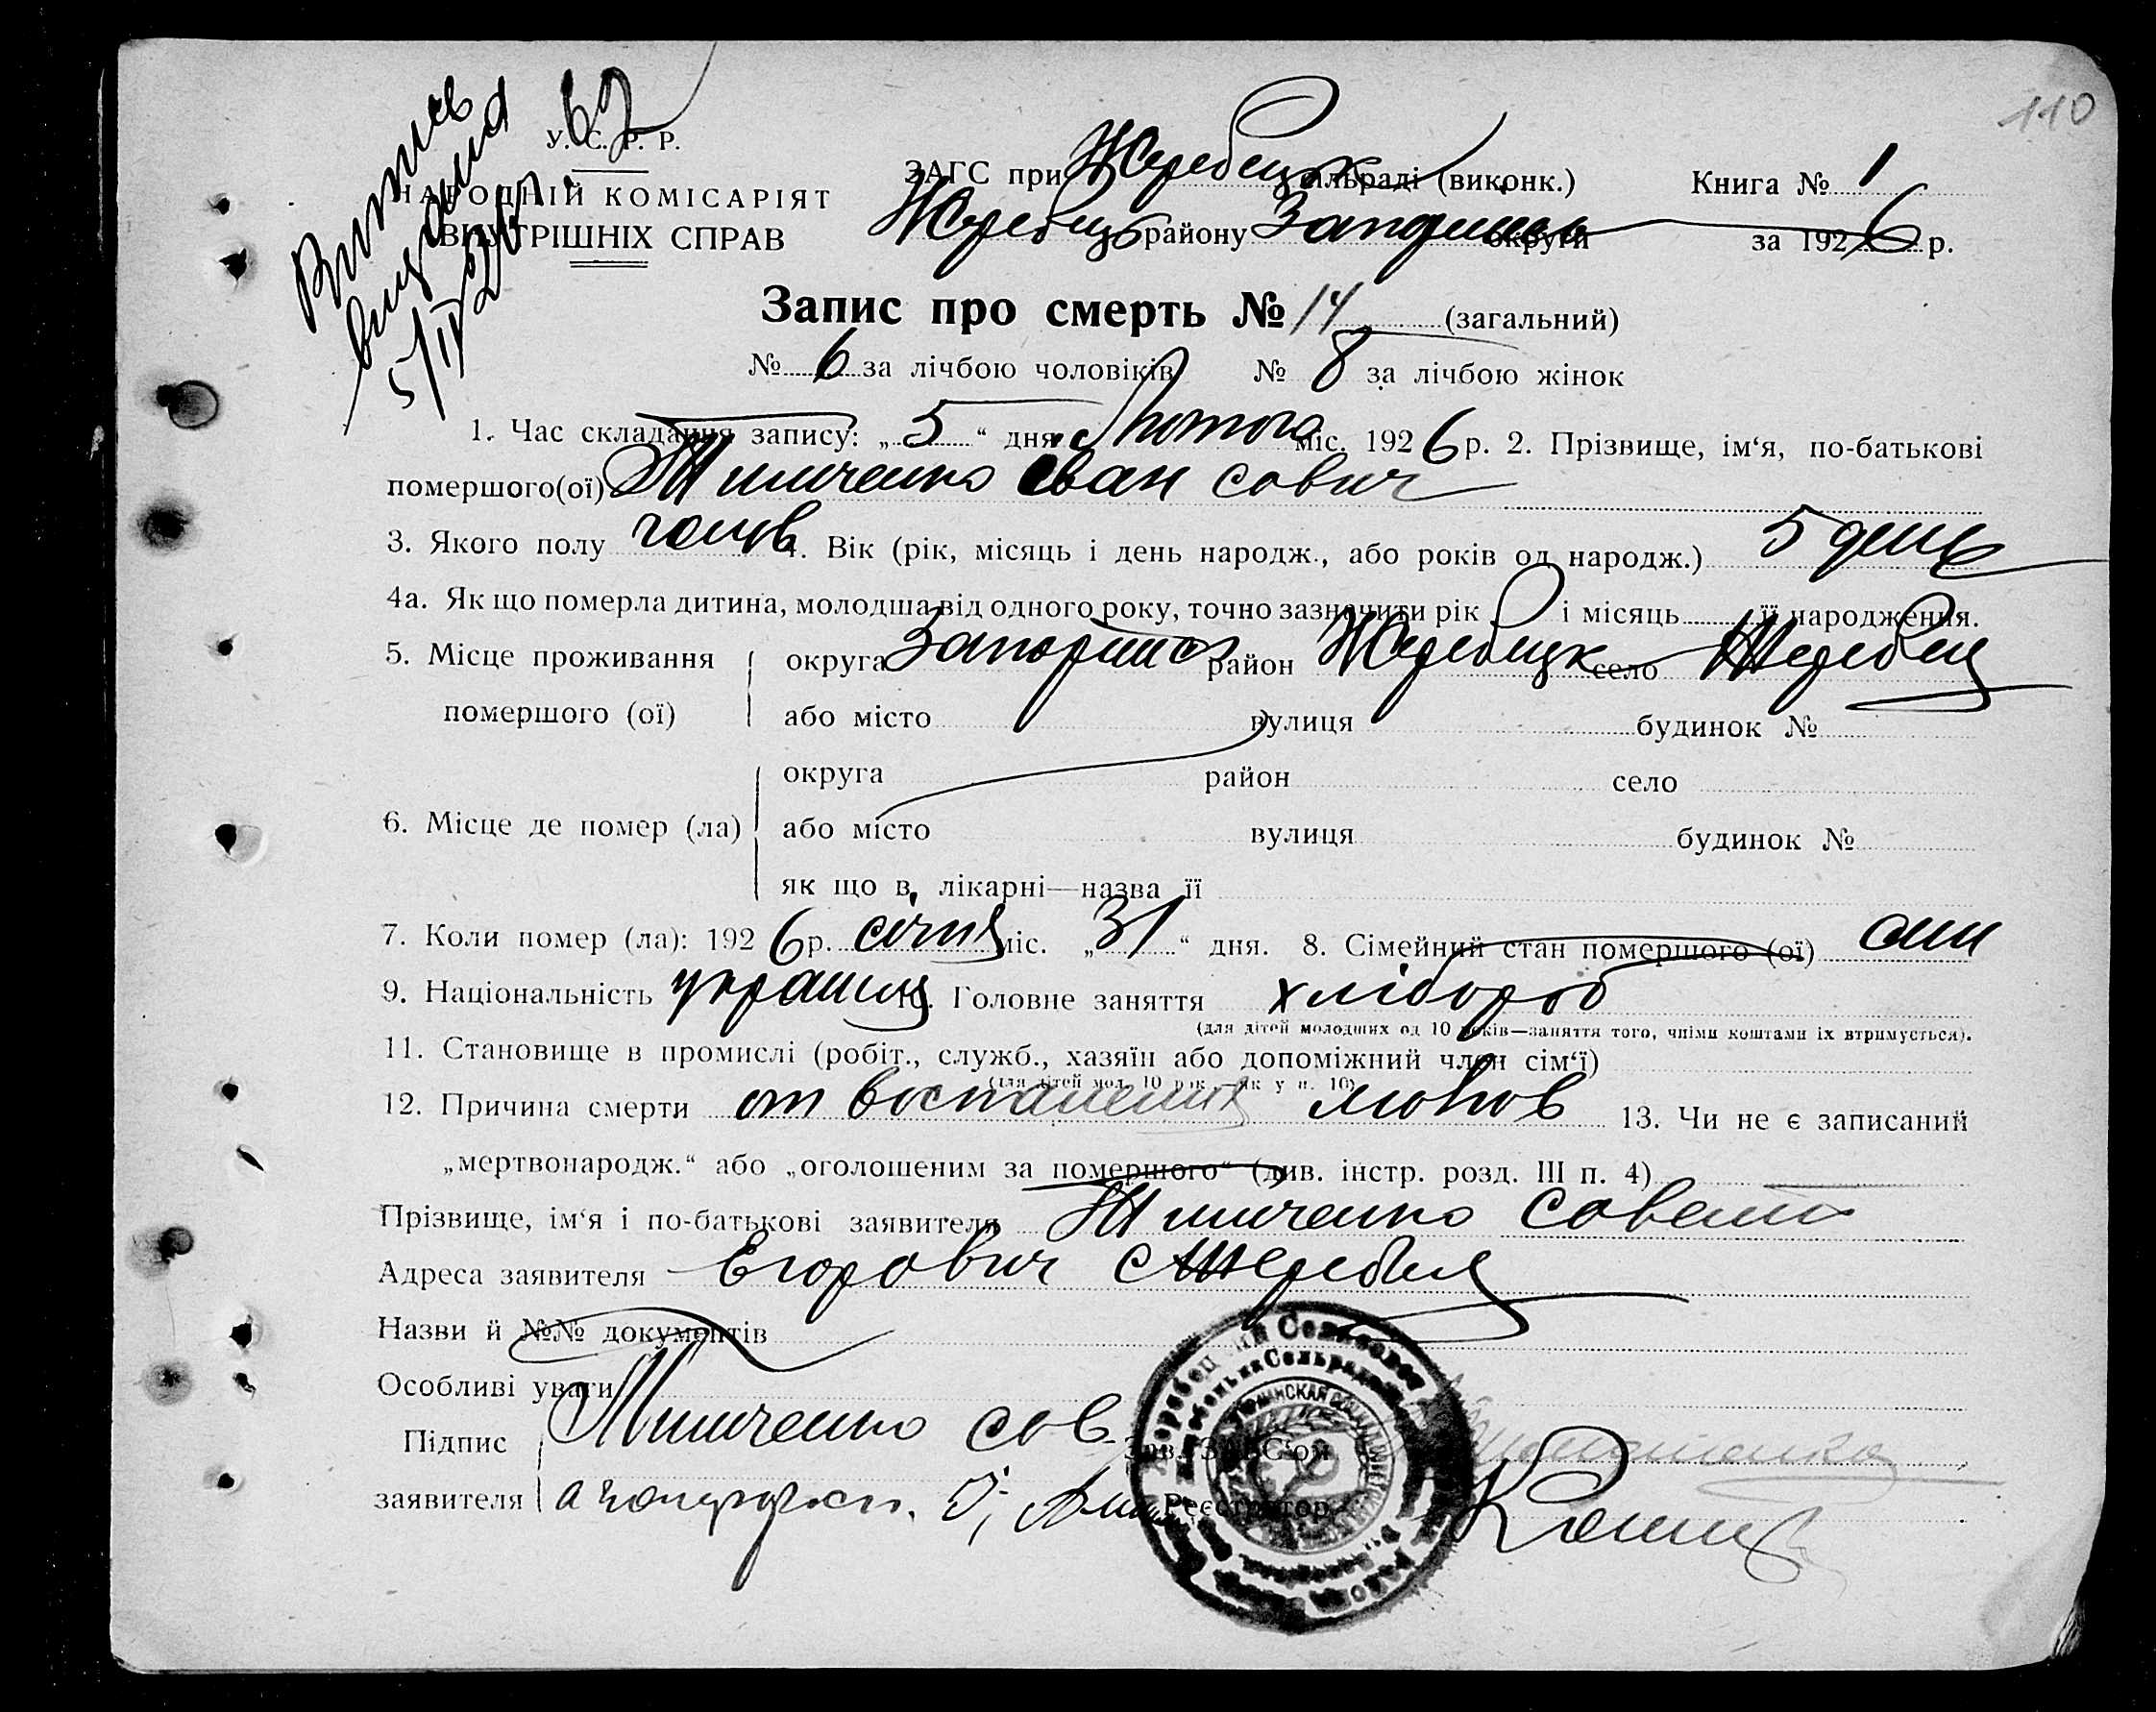 110
Витись
видана
5/IV 26 г.
У. С. Р. Р.
НАРОДНІЙ КОМІСАРІЯТ
ВНУТРІШНІХ СПРАВ
ЗАГС при Жеребецьк сільраді (виконк.) Книга № 1
Жеребецьк району округи за 1926 р.
Запис про смерть № 14 (загальний)
№ 6 за лічбою чоловіків № 8 за лічбою жінок
1. Час складання запису: „5“ дня Лютого міс. 1926 р. 2. Прізвище, ім‘я, по-батькові
помершого(ої) Тимченко Іван Савич
3. Якого полу 4. Вік (рік, місяць і день народж., або років од народж.) 5 день
4а. Як що померла дитина, молодша від одного року, точно зазначити рік і місяць її народження.
5. Місце проживання округа район Жеребецьк село Жеребец
помершого (ої) або місто вулиця будинок №
округа район село
6. Місце де помер (ла) або місто вулиця будинок №
як що в лікарні—назва її
7. Коли помер (ла): 1926 р. січня міс. „31“ дня. 8. Сімейний стан помершого (ої) син
9. Національність украинц 10. Головне заняття хлібороб
(для дітей молодших од 10 років—заняття того, чиїми коштами їх втримується).
11. Становище в промислі (робіт., служб., хазяїн або допоміжний член сім‘ї)
(для дітей мол. 10 рок.—як у п. 10)
12. Причина смерти от воспаления 13. Чи не є записаний
„мертвонародж.“ або „оголошеним за помершого“ (див. інстр. розд. III п. 4)
Прізвище, ім‘я і по-батькові заявителя Тимченко Савелий
Адреса заявителя Егорович с Жеребец
Назви й №№ документів
Особливі уваги
Підпис Тимченко Сав Зав. ЗАГС‘ом
заявителя Реєстратор